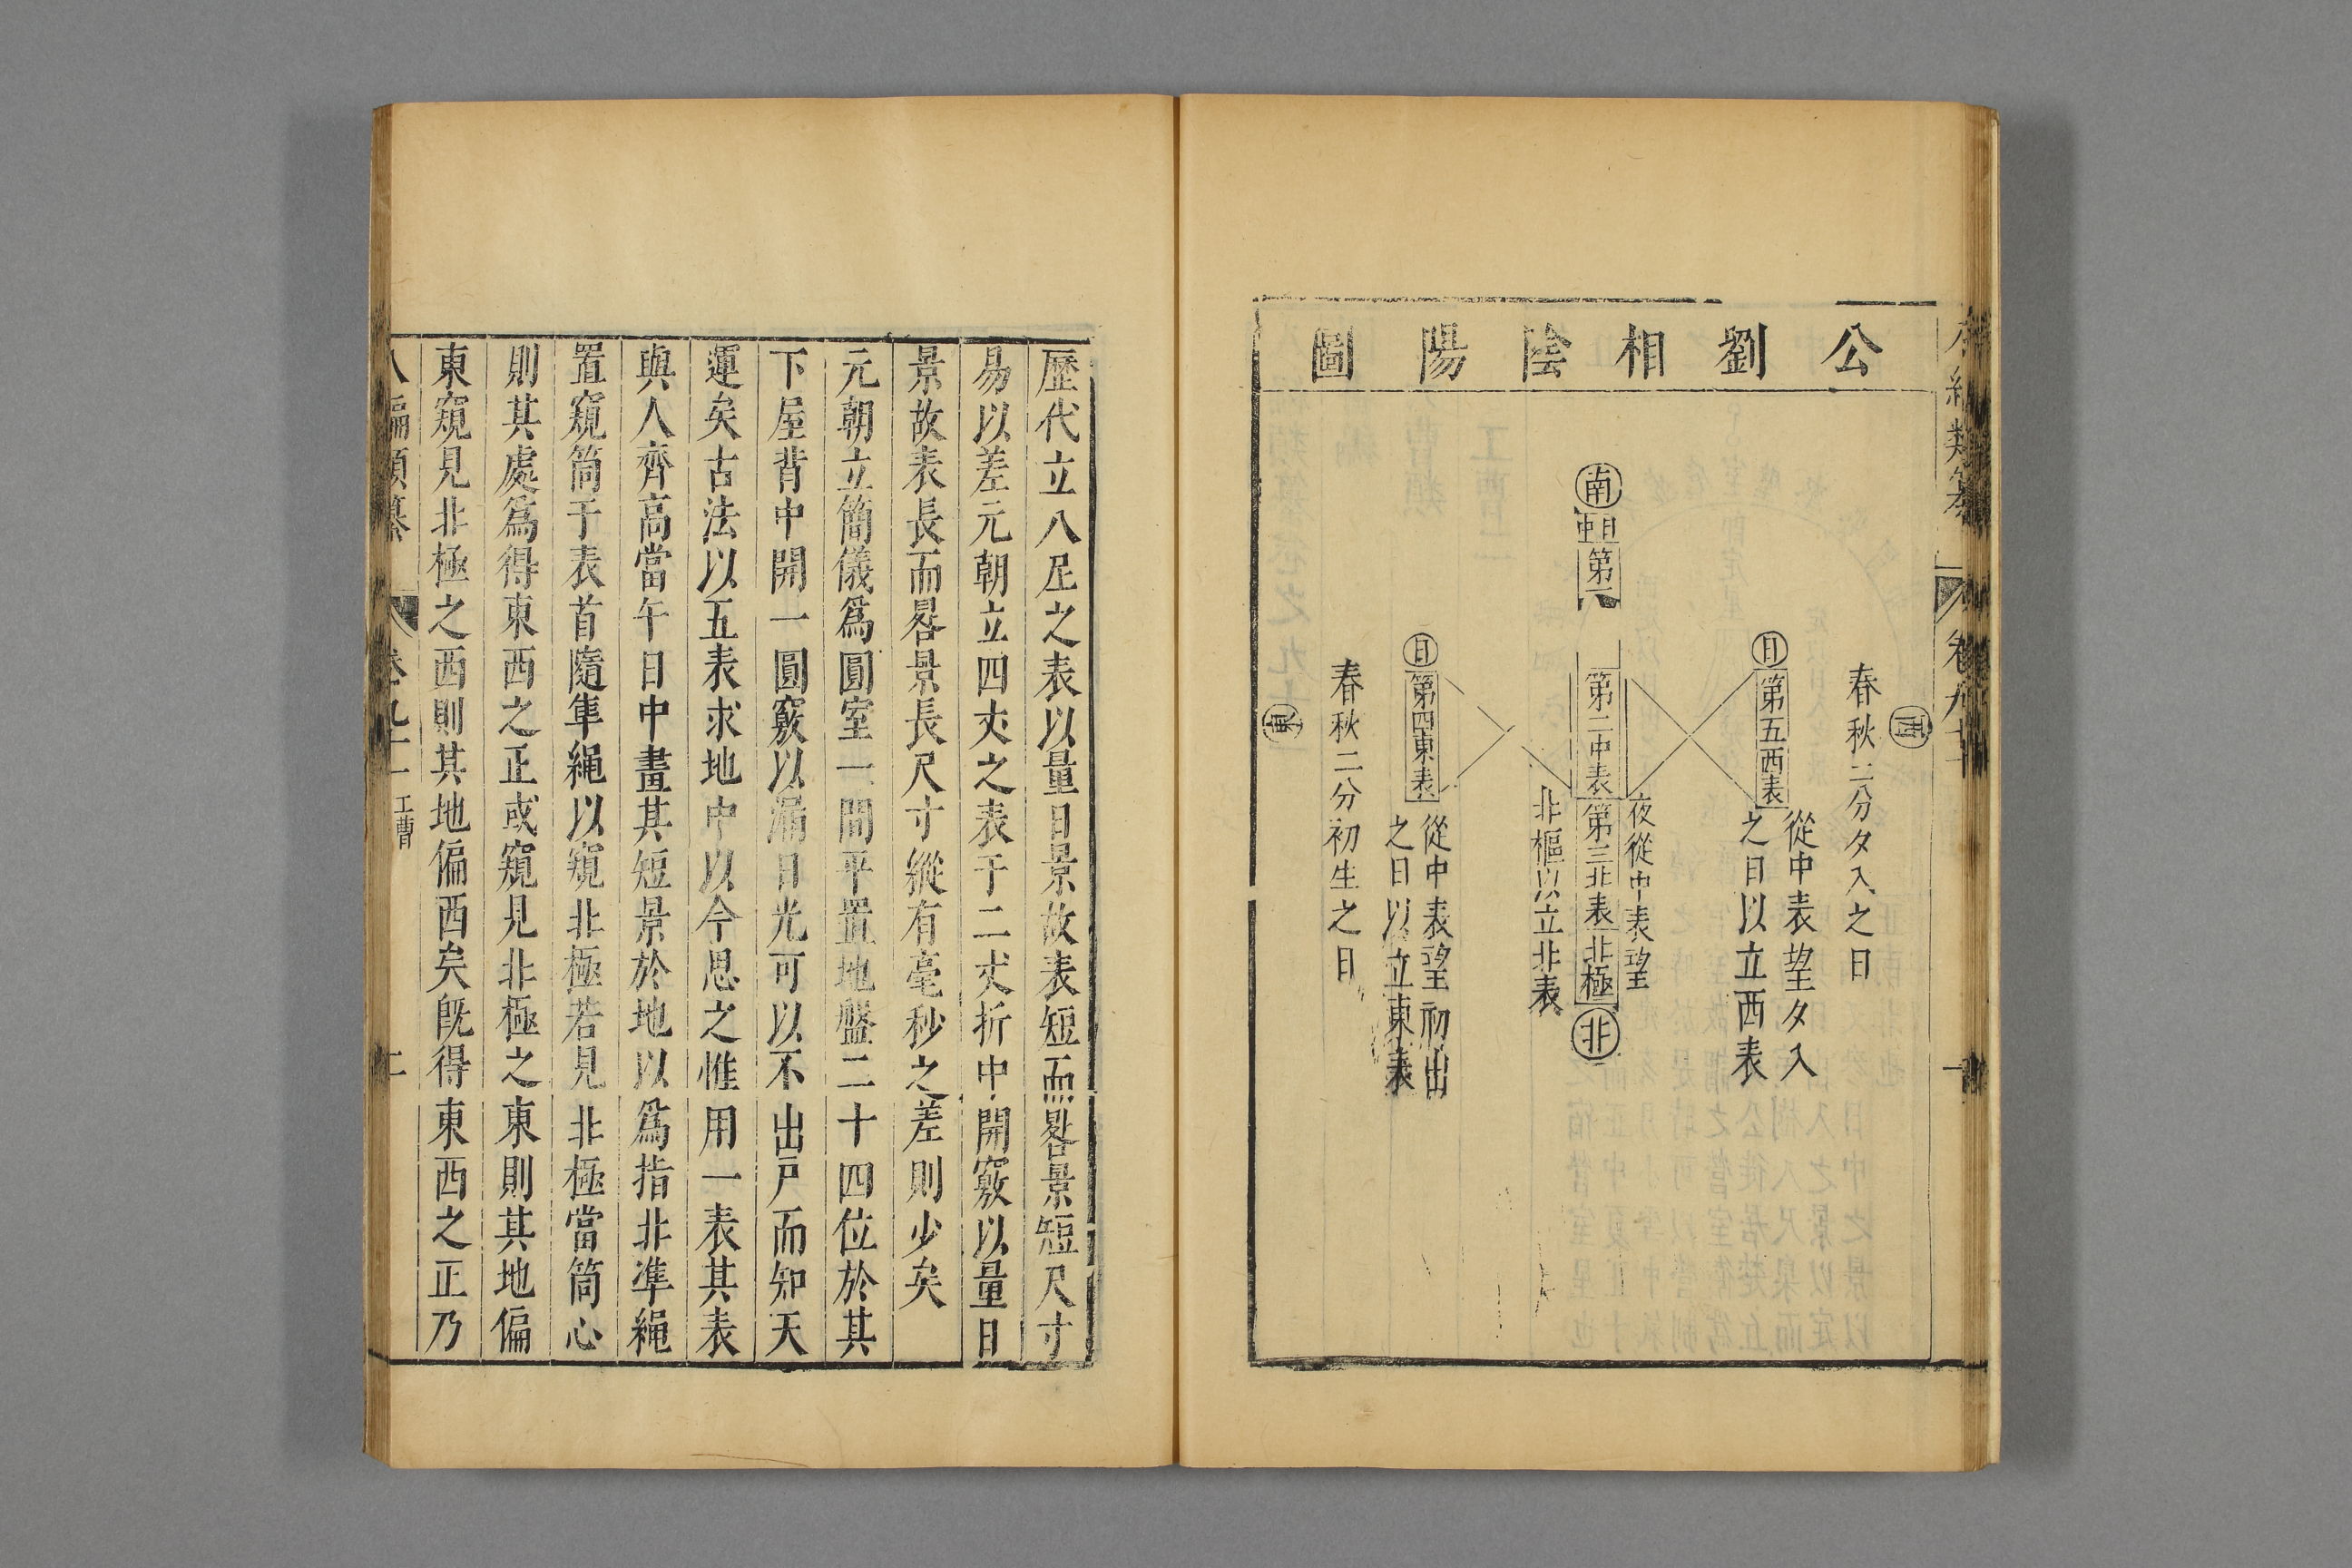 公劉相陰陽圖
西
春秋二分夕入之日
日
第五西表
從中表望夕入
之日以立西表
南
日中
第一
第二中表
第三北表北極
北
夜從中表望
北樞以立北表
日
第四東表
從中表望初出
之日以立東表
春秋二分初生之日
東
歷代立八尺之表以量日景故表短而晷景短尺寸
易以差元朝立四丈之表于二丈折中開竅以量日
景故表長而晷景長尺寸縱有毫秒之差則少矣
元朝立簡儀爲圓室一間平置地盤二十四位於其
下屋背中開一圓竅以漏日光可以不出戶而知天
運矣古法以五表求地中以今思之惟用一表其表
與人齊高當午日中畫其短景於地以爲指北準繩
置窺筒于表首隨準繩以窺北極若見北極當筒心
則其處爲得東西之正或窺見北極之東則其地偏
東窺見北極之西則其地偏西矣旣得東西之正乃
八編類纂 卷九十一 工曹 二